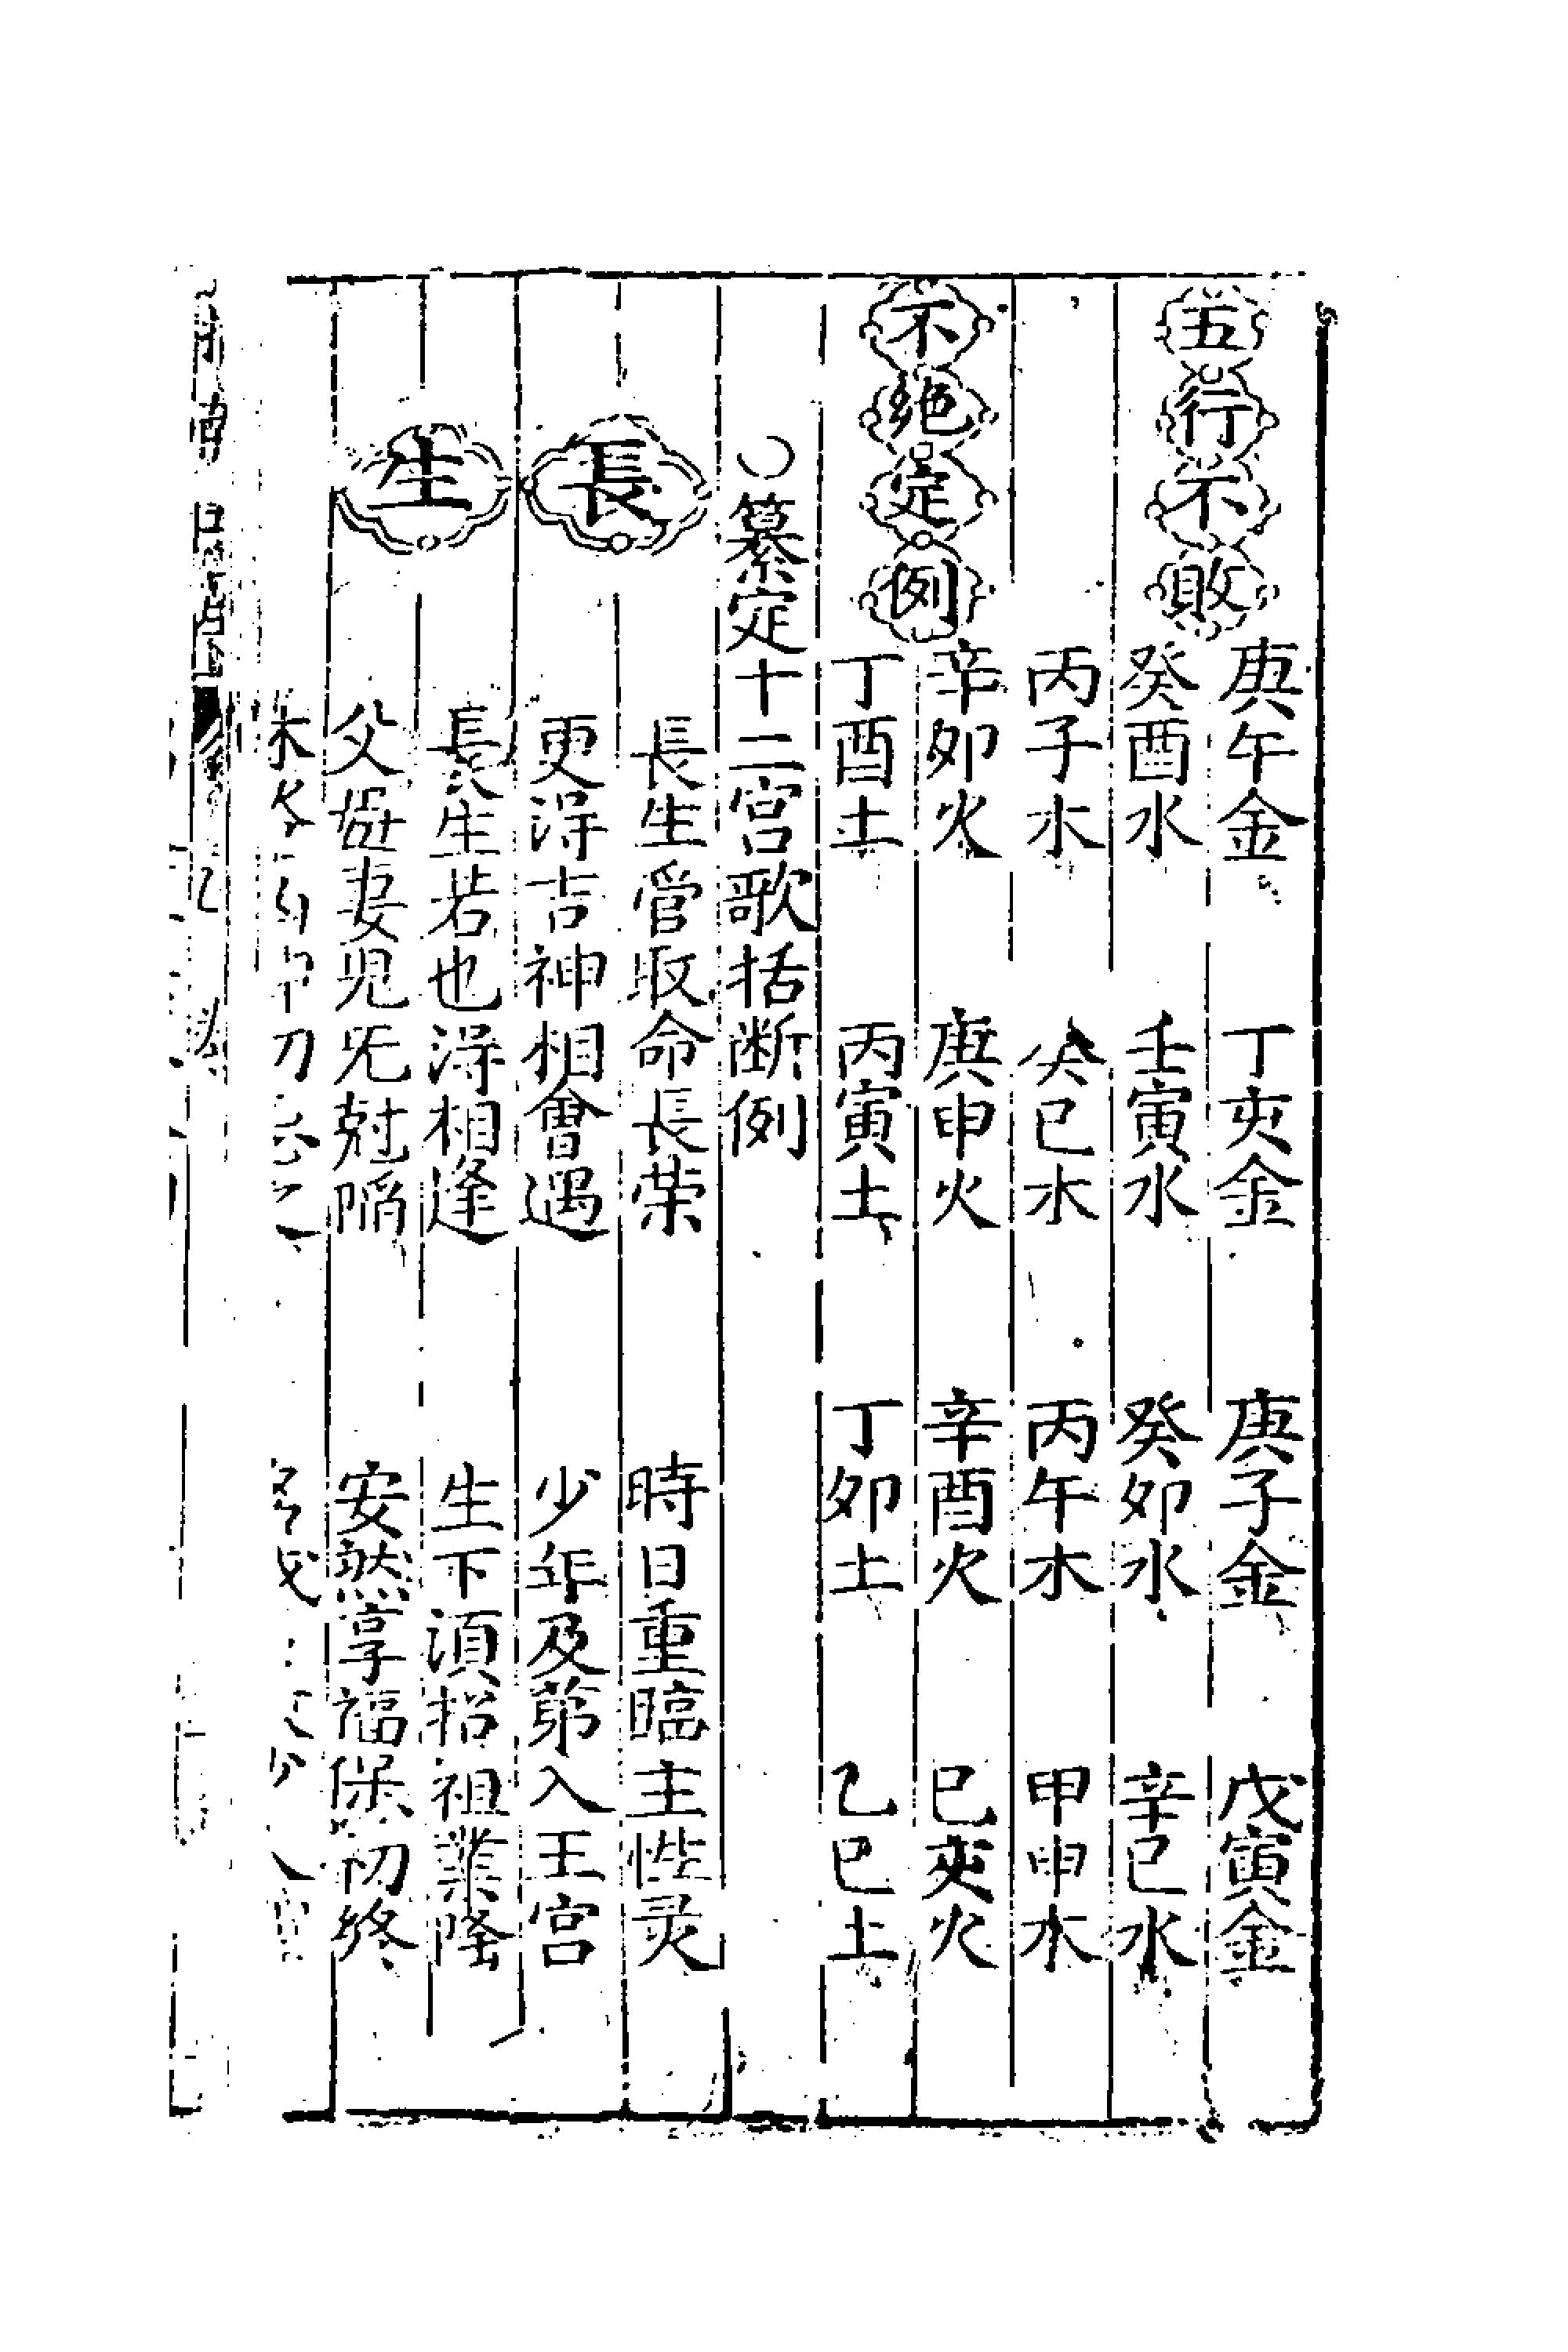 五行不敗
庚午金 丁亥金 庚子金 戊寅金
癸酉水 壬寅水 癸卯水 辛巳水
丙子水 癸巳水 丙午水 甲申水
不絶定例
辛卯火 庚申火 辛酉火 巳亥火
丁酉土 丙寅土 丁卯土 乙巳土
〇纂定十二宫歌括断例
長生
長生管取命長荣 時日重臨主性灵
更淂吉神相會遇 少年及苐入王宫
長生若也淂相逢 生下湏招祖業隆
父母妻児旡尅陷 安然享福保初終